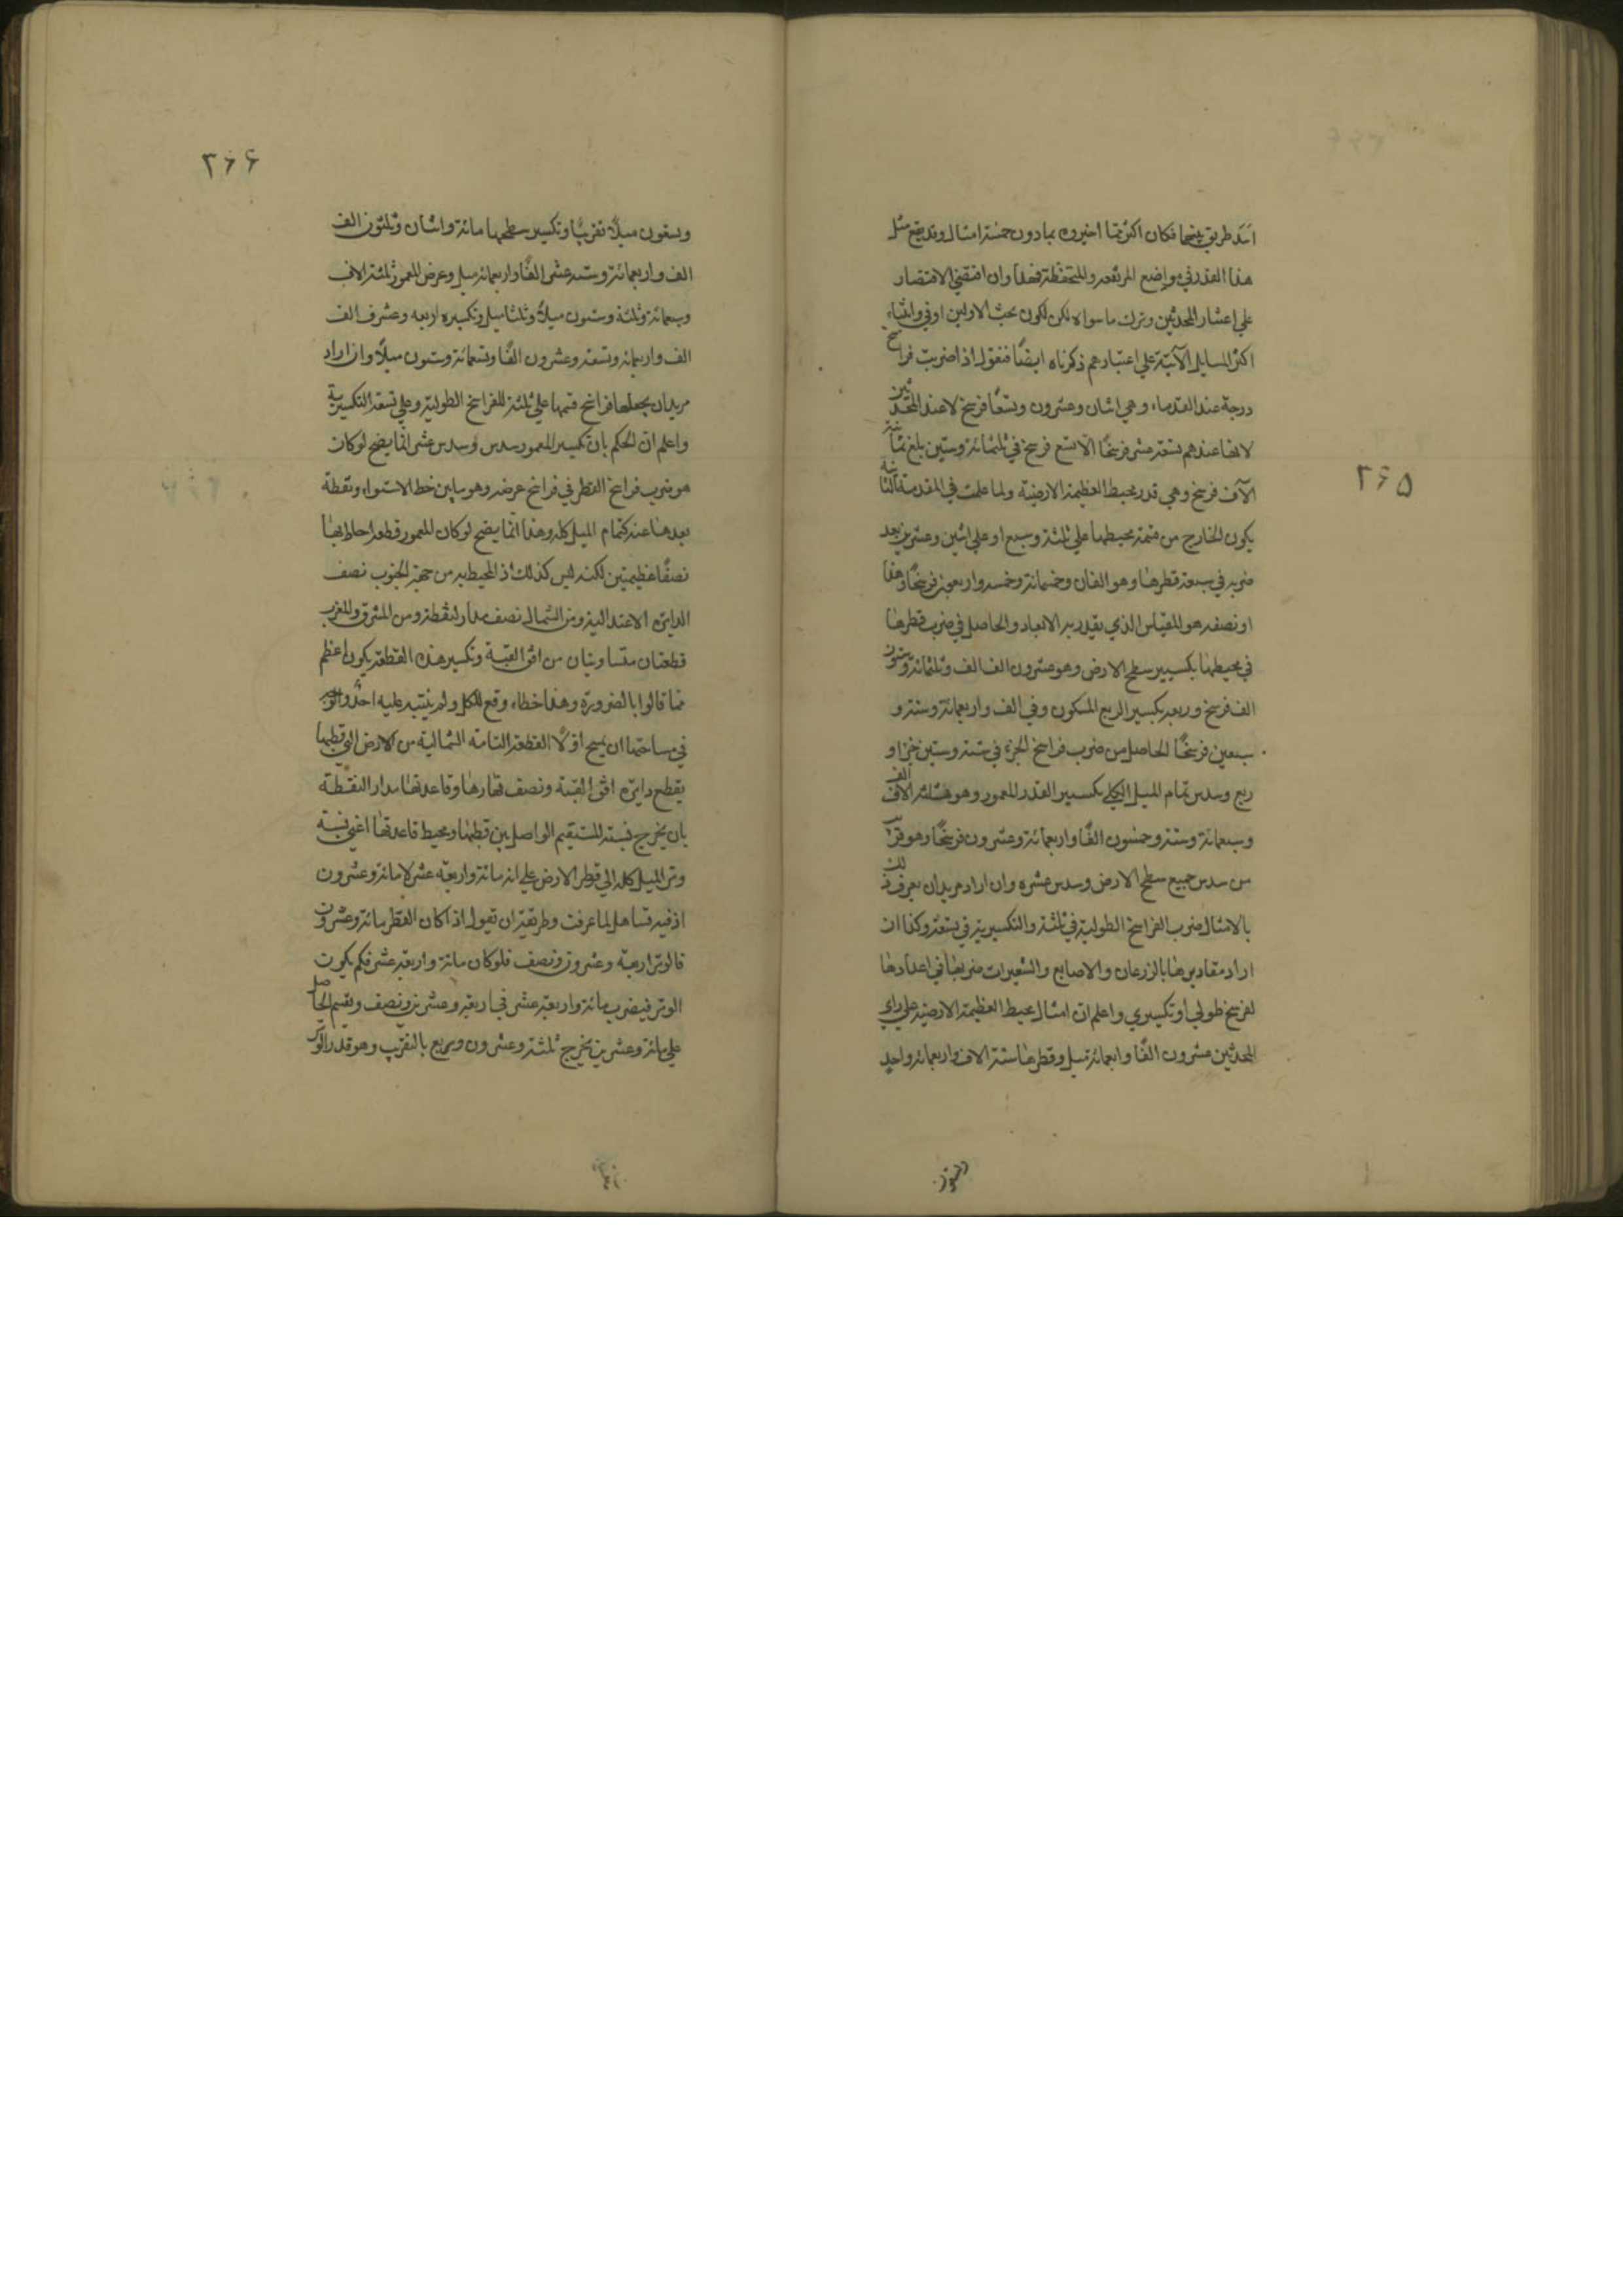 ۲۶۵
اسّد طريق بينهما فكان اكثر مما اخبروه بمادون خمسة امثال وقد يقع مثل
هذا القدر في مواضع المرتفعه والمنخفظة فهذا وان اقتضي الاقتصار
علي اعتبار المحدثين وترك ماسواه لكن لكون بحث الاولين اوفي وابتناء
اكثر المسايل الآتية علي اعتبارهم ذكرناه ايضًا فنقول اذا ضربت فراسخ
درجة عند القدماء وهي اثنان وعشرون وتسعًا فرسخ لا عند المحدثين
لانها عندهم تسعة عشر فرسخًا الا تسع فرسخ في ثلثمائة وستين بلغ ثمانية
آلاف فرسخ وهي قدر محيط العظيمة الارضية ولما علمت في المقدمة الثالثة
يكون الخارج من قسمة محيطها علي ثلثة وسبع او علي اثنين وعشرين بعد
ضربه في سبعة قطرها وهو الفان وخمسمائة وخمسة واربعون فرسخًا وهذا
او نصفه هو المقياس الذي يقدر به الابعاد والحاصل في ضرب قطرها
في محيطها تكسيير سطح الارض وهو عشرون الف الف وثلثمائة وستون
الف فرسخ وربعه تكسير الربع المسكون وفي الف واربعمائة وستة و
سبعين فرسخًا الحاصل من ضرب فراسخ الجزء في ستة وستين جزاو
ربع وسدس تمام الميل الكلي تكسيير القدر المعمور وهو ثلثة الاف الف
وسبعمائة وستة وخمسون الفًا واربعمائة وعشرون فرسخًا وهو قريب
من سدس جميع سطح الارض وسدس عشره وان اراد مريدان يعرف ذلك
بالاميال ضرب الفراسخ الطولية في ثلثة والتكسيرية في تسعة وكذا ان
اراد مقاديرها بالزرعان والاصابع والشعيرات ضربها في اعدادها
لفرسخ طولي او تكسيري واعلم ان اميال محيط العظيمة الارضية علي راي
المحدثين عشرون الفًا واربعمائة ميل وقطرها ستة الاف واربعمائة واحد
وتسعون
۲۶۶
وتسعون ميلًا تقريبًا وتكسير سطحها مائة واثنان وثلثون الف
الف واربعمائة وستة عشر الفًا واربعمائة ميل وعرض المعمور ثلثة الاف
وسبعمائة وثلثة وستون ميلًا وثلثا ميل وتكسيره اربعه وعشرف الف
الف واربعمائه وتسعة وعشرون الفًا وتسعمائة وستون ميلًا وان اراد
مريدان يجعلها فراسخ قسمها علي ثلثة للفراسخ الطولية وعلي تسعة التكسيرية
واعلم ان الحكم بان تكسير المعمور سدس وسدس عشر انما يصح لوكان
هو ضرب فراسخ القطر في فراسخ عرضه وهو مابين خط الاستواء ونقطة
بعدها عنه كتمام الميل كله وهذا انما يصح لوكان المعمور قطعه احاط بها
نصفًا عظيمتين لكنه ليس كذلك اذ المحيط به من جهة الجنوب نصف
الدايره الاعتدالية ومن الشمال نصف مدار النقطة ومن المشرق والمغرب
قطعتان متساويتان من افق القبّة وتكسير هذه القطعة يكون اعظم
مما قالوا بالضرورة وهذا خطاء وقع للكل ولم ينتبه عليه احدٌ والوجه
في مساحتها ان يمسح اوّلًا القطعة التامة الشمالية من الارض التي قطبها
يقطع دايره افق القبة ونصف نهارها وقاعدتها مدار النقطة
بان يخرج نسبة المستقيم الواصل بين قطبها ومحيط قاعدتها اعني نسبة
وتر الميل كله الي قطر الارض علي انه مائة واربعة عشر لا مائة وعشرون
اذ فيه تساهل لما عرفت وطريقه ان تقول اذا كان القطر مائة وعشرون
فالوتر اربعة وعشرون ونصف فلو كان مائة واربعة عشر فكم يكون
الوتر فيضرب مائة واربعة عشر في اربعة وعشرين ونصف ويقسم الحاصل
علي مائة وعشرين يخرج ثلثة وعشرون وربع بالتقريب وهو قدر الوتر